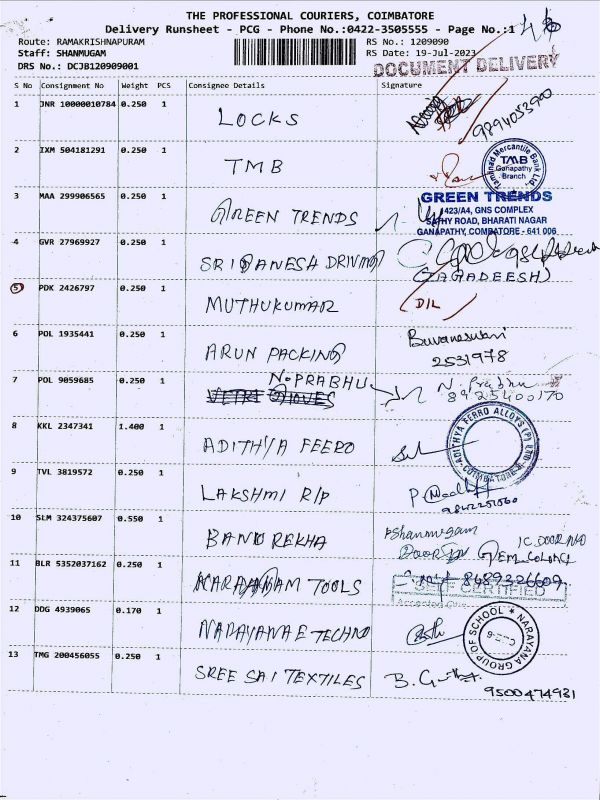 THE PROFESSIONAL COURIERS, COIMBATORE
Delivery Runsheet - PCG - Phone No.:0422-3505555 - Page No.:1
Route: RAMAKRISHNAPURAM RS No.: 1209090
Staff: SHANMUGAM RS Date: 19-Jul-2023
DRS No.: DCJB120909001 DOCUMENT DELIVERY
S No Consignment No Weight PCS Consignee Details Signature
1 JNR 10000010784 0.250 1 LOCKS 9894053900
2 IXM 504181291 0.250 1 TMB
Tamilnad Mercantile Bank Ltd. TMB Ganapathy Branch.
3 MAA 299906565 0.250 1 GREEN TRENDS
GREEN TRENDS
423/A4, GNS COMPLEX
SATHY ROAD, BHARATI NAGAR
GANAPATHY, COIMBATORE - 641 006
4 GVR 27969927 0.250 1 SRI GANESH DRIVING
(JAGADEESH)
5 PDK 2426797 0.250 1 MUTHUKUMAR D/L
6 POL 1935441 0.250 1 ARUN PACKING Buvaneswari
2531978
7 POL 9059685 0.250 1 N.PRABHU N. Prabhu
VETRI GLOVES 8925400170
8 KKL 2347341 1.400 1 ADITHYA FEERO
ADITHYA FERRO ALLOYS (P) LTD. COIMBATORE
9 TVL 3819572 0.250 1 LAKSHMI R/P
10 SLM 324375607 0.550 1 BANU REKHA Shanmugam
DOOR GEM COLONY
11 BLR 5352037162 0.250 1 NARAYANAM TOOLS 8489326609
SELF CERTIFIED
12 DDG 4939065 0.170 1 NARAYANA E TECHNO
NARAYANA GROUP OF SCHOOL CBE-6
13 TMG 200456055 0.250 1 SREE SAI TEXTILES
9500474931